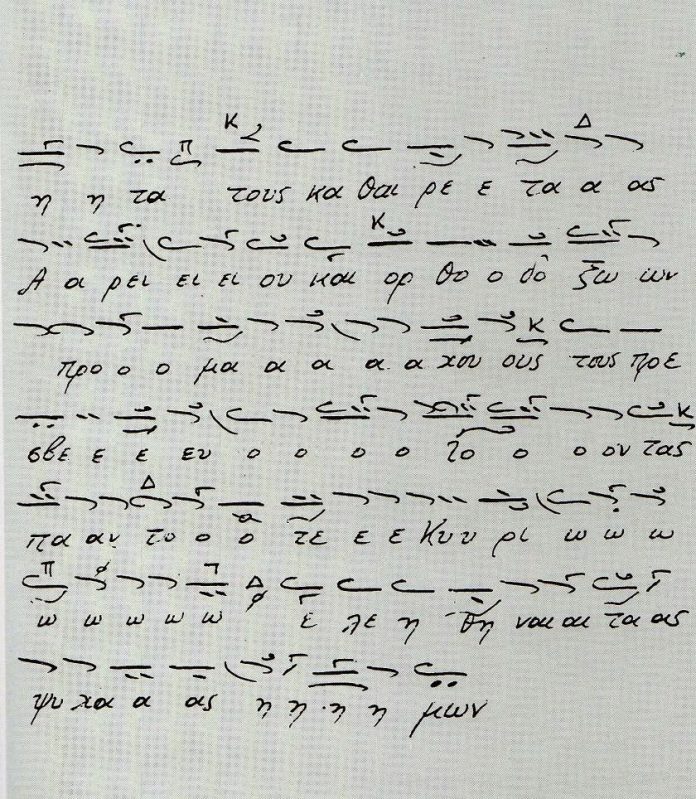 η η τα τους κα θαι ρε ε τα α ας
Α α ρει ει ει ου και ορ θο ο δο ξω ων
προ ο ο μα α α α α α χου ους τους πρε
σβε ε ε ευ ο ο ο ο το ο ο ον τας
πα αν το ο ο τε ε ε Κυ υ ρι ω ω ω
ω ω ω ω ω ε λε η θη ναι αι τα ας
ψυ χα α ας η η η η μων